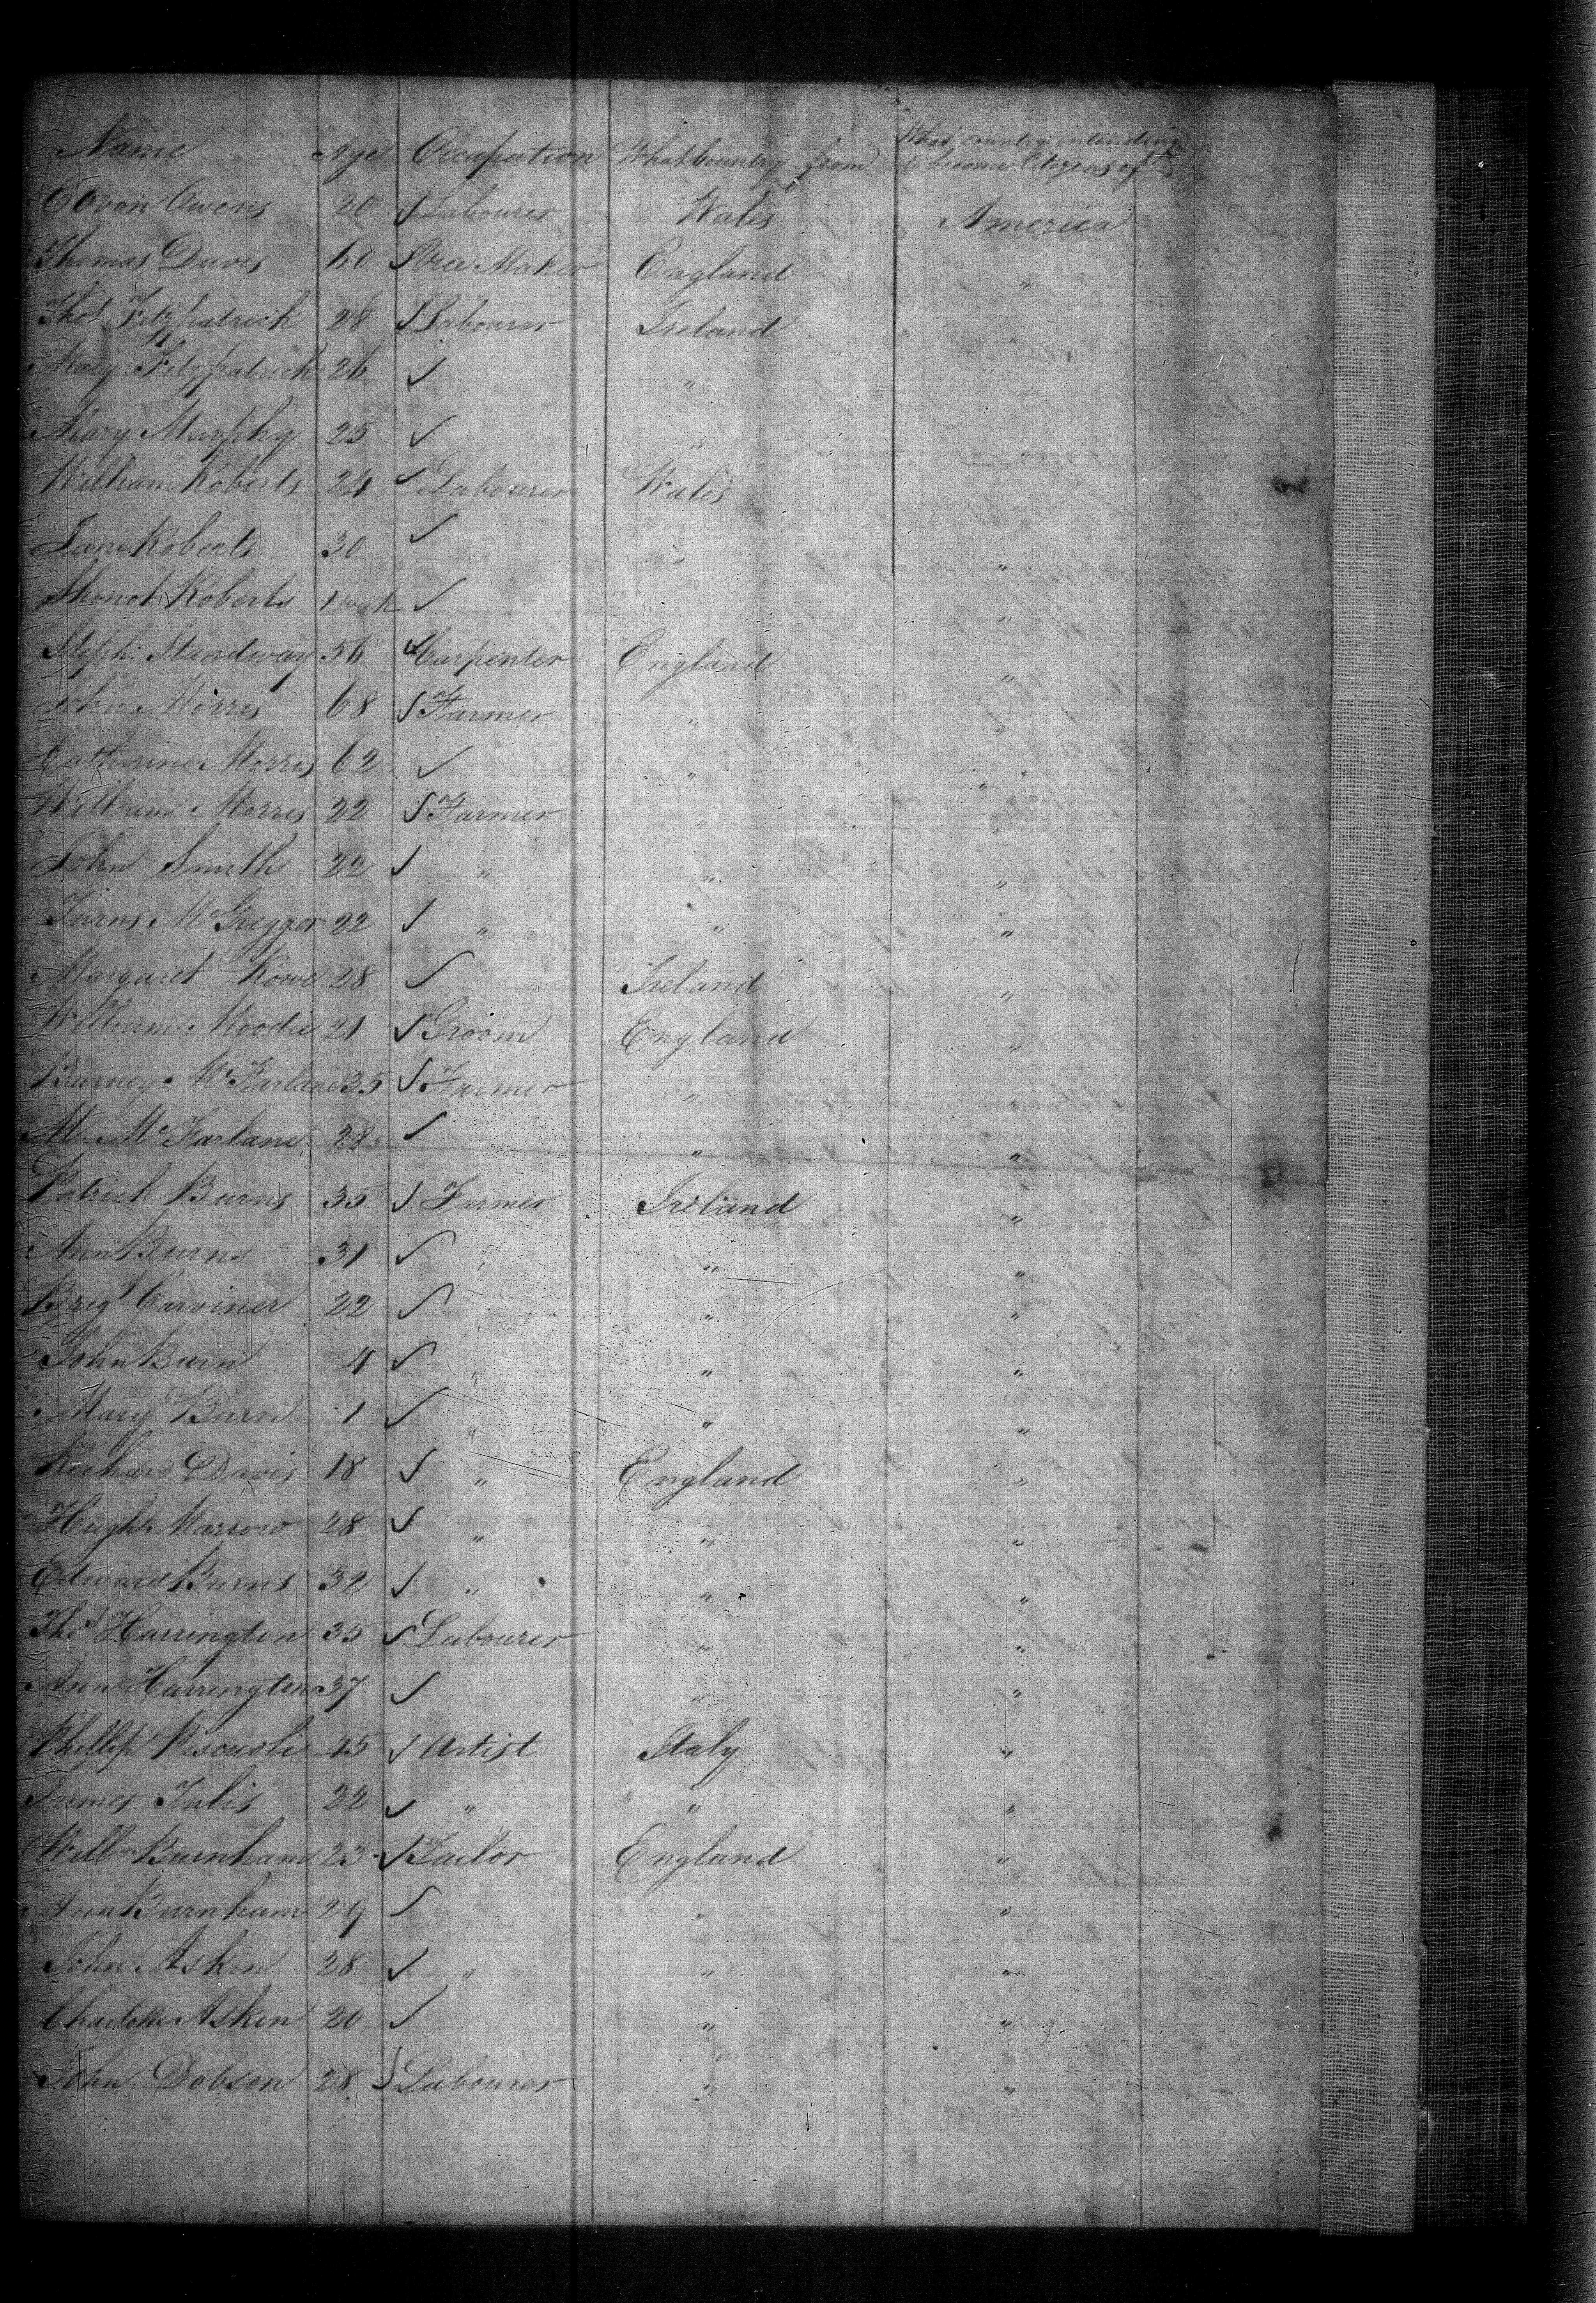 Name Age Occupation What Country from What Country intending
to become Citizens of
Owens 20 Labourer Wales America
Thomas Davis 60 Maker England "
Thos Fitzpatrick 28 Labourer Ireland "
Mary Fitzpatrick 26 "
Mary Murphy 25 " "
William Roberts 24 Labourer Wales "
Jane Roberts 30 " "
Roberts 1 week " "
Steph: Standway 56 Carpenter England "
John Morris 68 Farmer " "
Catherine Morris 62 " "
William Morris 22 Farmer " "
John Smith 22 " " "
McGregger 22 " " "
Margaret Rowe 28 Ireland "
William Moodie 21 Groom England "
Barney McFarlane 35 Farmer " "
M. McFarlane 28 " "
Patrick Burns 35 Farmer Ireland "
Ann Burns 31 " " "
Brigt Carviner 22 " "
John Burn 4 " " "
Mary Burn 1 " " "
Richard Davis 18 " England "
Hugh Marrow 28 " " "
Edward Burns 32 " " "
Thos Harrington 35 Labourer " "
Ann Harrington 37 " "
Phillip 45 Artist Italy "
James 22 " " "
Willm Burnham 23 Tailor England "
Ann Burnham 29 " "
John Askin 28 " " "
Charlotte Askin 20 " "
John Dobson 28 Labourer " "